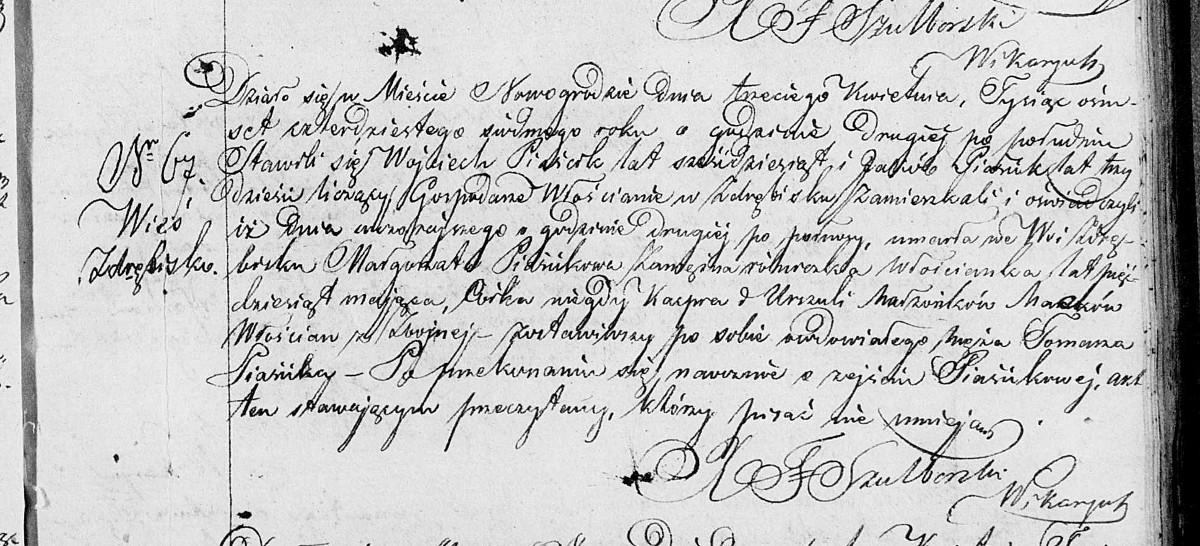 X F Szulborski
Wikaryusz
Działo się w Mieście Nowogrodzie dnia trzeciego Kwietnia, Tysiąc ośm-
set czterdziestego siódmego roku o godzinie drugiej po południu
Nr 67.
Stawili się Wojciech Piasick lat sześćdziesiąt i Jakób Piasiuk lat trzy
dzieści liczący Gospodarze Włościanie w Zdrębisku zamieszkali i oświadczyli
Wieś
iż dnia wczorajszego o godzinie drugiej po północy, umarła we Wsi Zdrę-
Zdrębisko.
bisku Małgorzata Piasikowa zamężna rólniczka Włościanka lat pięć-
dziesiąt mająca, Córka niegdy Kacpra & Urszuli Małżonków
Włościan z Zbojnej – zostawiwszy po sobie owdowiałego męża Tomasza
Piasika – Po przekonaniu się naocznie o zejściu Piasikowej, akt
ten stawającym przeczytany, którzy pisać nie umieją
X F Szulborski
Wikaryusz